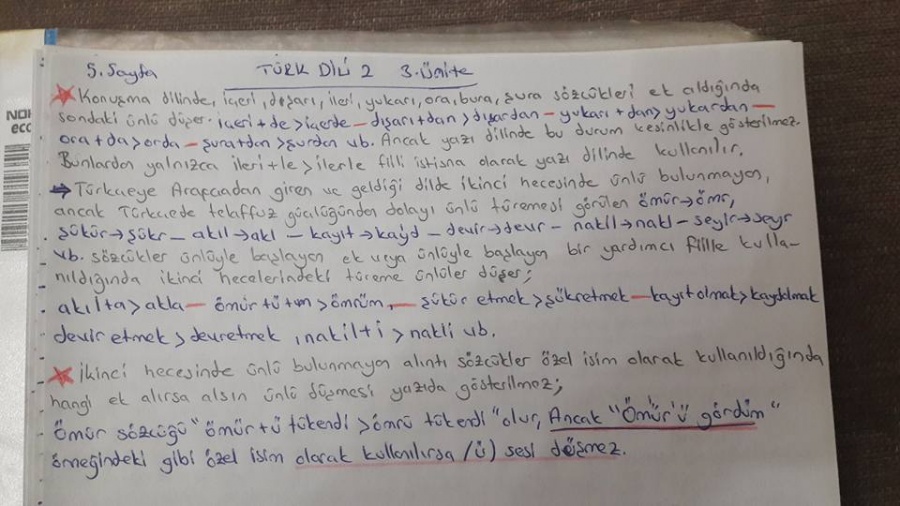 5. Sayfa TÜRK DİLİ 2 3. Ünite
Konuşma dilinde, içeri, dışarı, ileri, yukarı, ora, bura, şura sözcükleri ek aldığında
sondaki ünlü düşer. içeri + de > içerde — dışarı + dan > dışardan — yukarı + dan > yukardan —
ora + da > orda — şura + dan > şurdan vb. Ancak yazı dilinde bu durum kesinlikle gösterilmez.
Bunlardan yalnızca ileri + le > ilerle fiili istisna olarak yazı dilinde kullanılır.
→ Türkçeye Arapçadan giren ve geldiği dilde ikinci hecesinde ünlü bulunmayan,
ancak Türkçede telaffuz güçlüğünden dolayı ünlü türemesi görülen ömür → ömr,
şükür → şükr — akıl → akl — kayıt → kayd — devir → devr — nakil → nakl — seyir → seyr
vb. sözcükler ünlüyle başlayan ek veya ünlüyle başlayan bir yardımcı fiille kulla-
nıldığında ikinci hecelerindeki türeme ünlüler düşer;
akıl + a > akla — ömür + ü + m > ömrüm, — şükür etmek > şükretmek — kayıt olmak > kaydolmak
devir etmek > devretmek, nakil + i > nakli vb.
İkinci hecesinde ünlü bulunmayan alıntı sözcükler özel isim olarak kullanıldığında
hangi ek alırsa alsın ünlü düşmesi yazıda gösterilmez;
Ömür sözcüğü "ömür + ü tükendi > ömrü tükendi" olur, Ancak "Ömür'ü gördüm"
örneğindeki gibi özel isim olarak kullanılırsa /ü/ sesi düşmez.